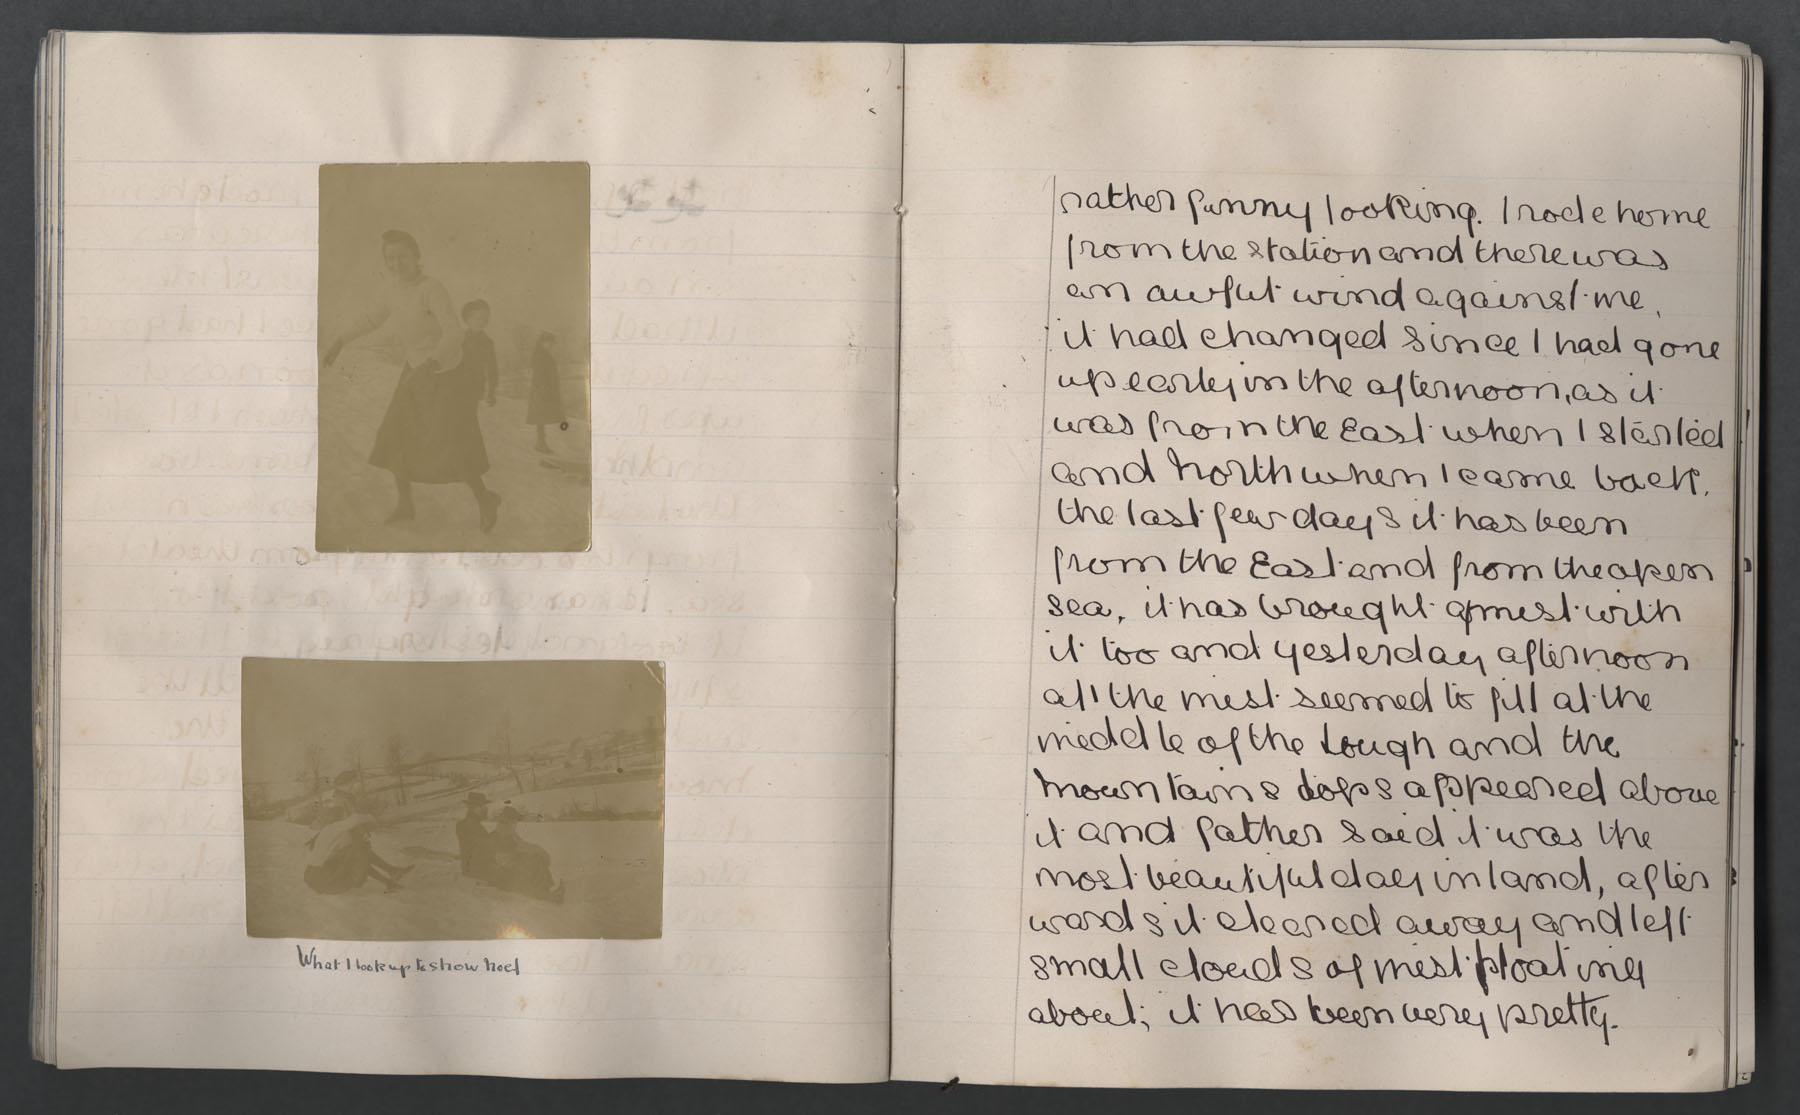 What I took up to show Noel
rather funny looking. I rode home
from the station and there was
an awful wind against me,
it had changed since I had gone
up early in the afternoon, as it
was from the East when I started
and North when I came back.
the last few days it has been
from the East and from the open
sea, it has brought mist with
it too and yesterday afternoon
all the mist seemed to fill al the
middle of the Lough and the
mountains tops appeared above
it and father said it was the
most beautiful day in land, after
wards it cleared away and left
small clouds of mist floating
about; it has been very pretty.